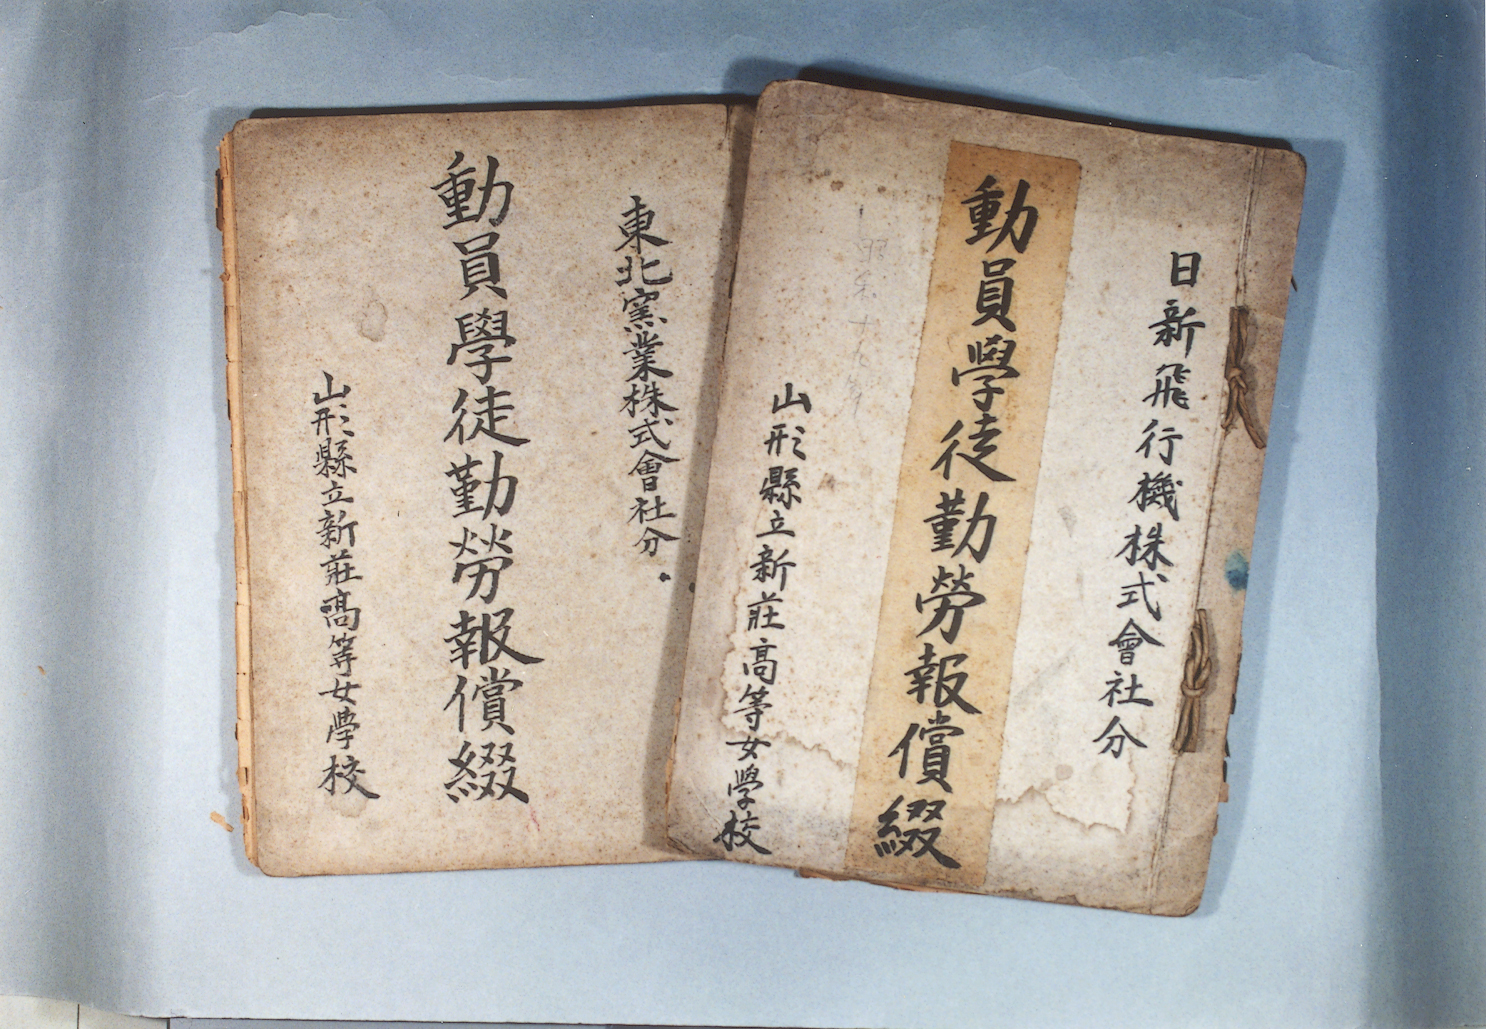 日新飛行機株式會社分
動員學徒勤勞報償綴
山形縣立新莊高等女學校
東北窯業株式會社分
動員學徒勤勞報償綴
山形縣立新莊高等女學校